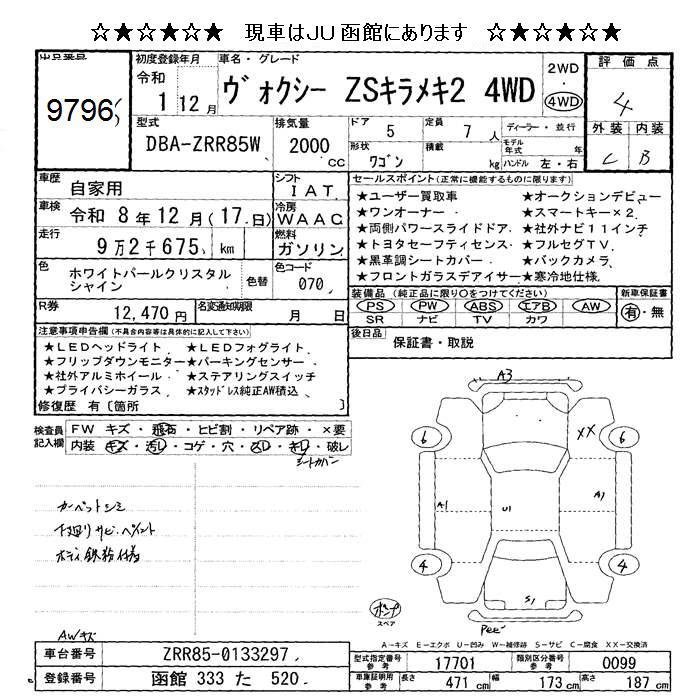 ☆★☆★☆ 現車はJU函館にあります ☆★☆★☆
出品番号
9796
初度登録年月
令和
1 12月
車名・グレード
ヴォクシー ZSキラメキ2 4WD
2WD
4WD
評価点
4
外装 内装
C B
型式
DBA-ZRR85W
排気量
2000 cc
ドア 5
定員 7 人
形状 ワゴン
積載 kg
ディーラー・並行
モデル年式 年
ハンドル 左・右
車歴 自家用
シフト IAT
車検 令和 8年12月(17.日)
冷房 WAAC
走行 9万2千675 km
燃料 ガソリン
色 ホワイトパールクリスタルシャイン
色替
色コード 070
R券 12,470円
名変通知期限 月 日
セールスポイント(正常に機能するものに限ります)
★ユーザー買取車 ★オークションデビュー
★ワンオーナー ★スマートキー×2
★両側パワースライドドア ★社外ナビ11インチ
★トヨタセーフティセンス ★フルセグTV
★黒革調シートカバー ★バックカメラ
★フロントガラスデアイサー ★寒冷地仕様
装備品 (純正品に限り○をつけてください)
PS PW ABS エアB AW
SR ナビ TV カワ
新車保証書
有・無
後日品 保証書・取説
注意事項申告欄(不具合内容等は具体的に記入して下さい)
★LEDヘッドライト ★LEDフォグライト
★フリップダウンモニター ★パーキングセンサー
★社外アルミホイール ★ステアリングスイッチ
★プライバシーガラス ★スタッドレス純正AW積込
修復歴 有〔箇所 〕
検査員記入欄
FW キズ・飛石・ヒビ割・リペア跡・×要
内装 キズ・汚レ・コゲ・穴・スレ・キレ・破レ
シートカバー
カーペットシミ
下廻りサビ・ペイント
ボディ鉄粉付着
AWキズ
A3
6
XX
6
A1
U1
A1
4
4
S1
ポンプ
スペア
A-キズ E-エクボ U-凹み W-補修跡 S-サビ C-腐食 XX-交換済
車台番号 ZRR85-0133297
登録番号 函館 333 た 520
型式指定番号 参考 17701
類別区分番号 参考 0099
車庫証明用 参考
長さ 471 cm
幅 173 cm
高さ 187 cm